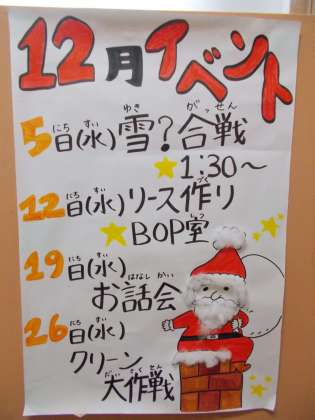 12月イベント
5日(水)雪?合戦
1:30〜
12日(水)リース作り
BOP室
19日(水)
お話会
26日(水)
クリーン
大作戦